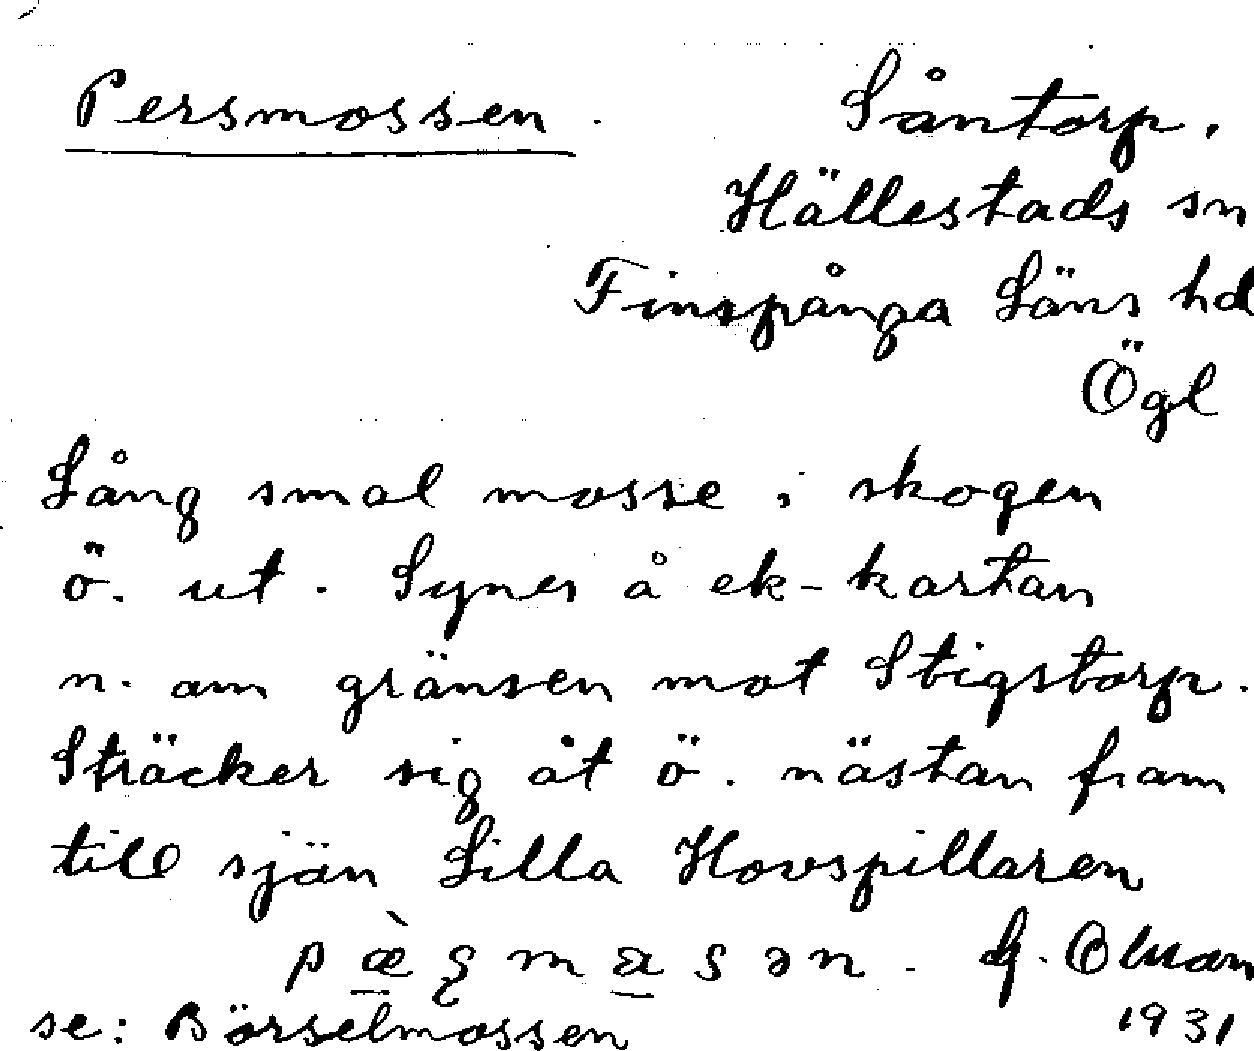 Persmossen. Såntorp,
Hällestads sn
Finspånga Läns hd
Ögl
Lång smal mosse i skogen
ö. ut. Synes å ek-kartan
n. om gränsen mot Stigstorp.
Sträcker sig åt ö. nästan fram
till sjön Lilla Hovspillaren
1931
se: Börselmossen